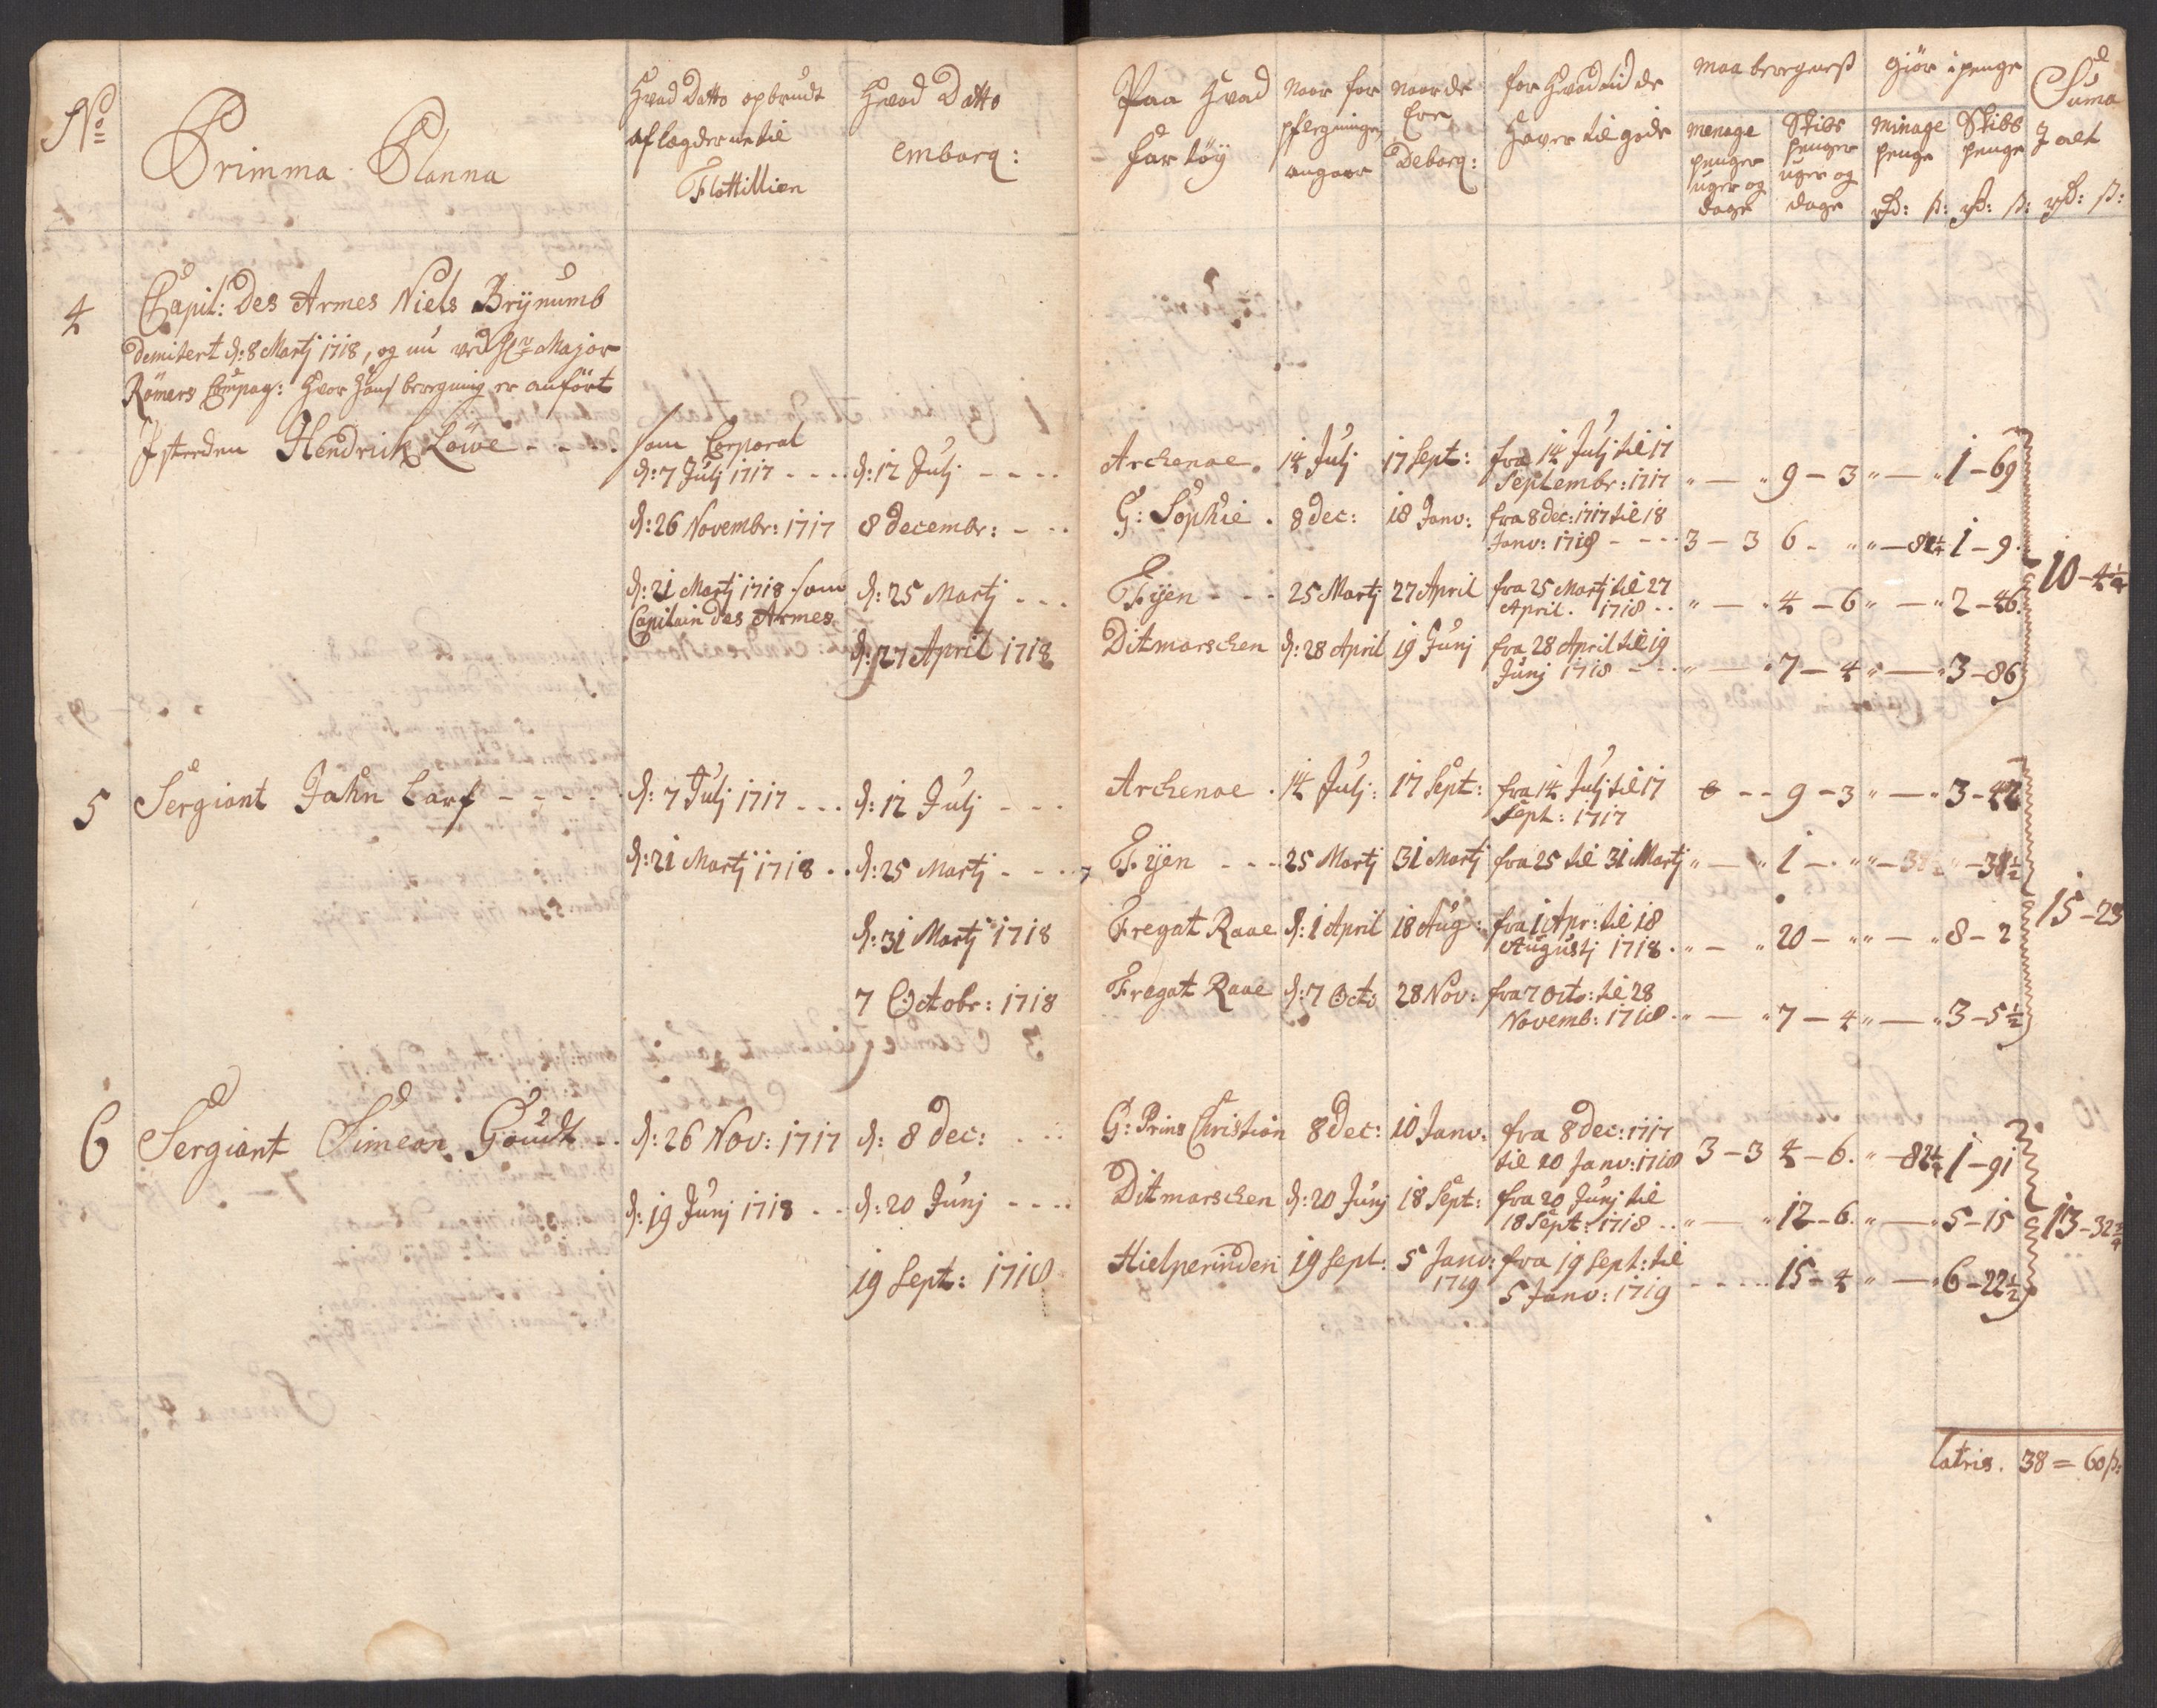 No
Primma Planna
Hvad Datto opbrudt
aflægderne til
Flottillien
Hvad Datto
embarq:
Paa Hvad
Fartøy
Naar for
pflegningen
angaar
Naar de
Ere
Debarq:
for Hvad tid de
Haver til gode
Maa beregnes
Menage
penger
uger og
dage
Skibs
penger
uger og
dage
Giør i penge
Minage
penge
Skibs
penge
Suma
J alt
rd: ß: rd: ß: rd: ß:
4
Capit: Des Armes Niels Brynumb
Demitert d: 8 Martj 1718, og nu ved Hr Major
Römers Compag: hvor hans beregning er anført
J steden Hendrich Löwe - - -
som Corporal
d: 7 Julj 1717 - - - d: 12 Julj - - - -
Archenoe. 14 Julj 17 Sept: fra 14 Julj til 17
Septembr: 1717 " — " 9 - 3 " — " 1 - 69
d: 26 Novembr: 1717 8 decembr: - - -
G: Sophie . 8 dec: 18 Janv: fra 8 dec: 1717 til 18
Janv: 1718 - - - 3 - 3 6 - " " — 82¼ 1 - 9.
10 - 4¼
d: 21 Martj 1718 som d: 25 Martj - - -
Capitain des Armes
Fyen - - - 25 Martj 27 April fra 25 Martj til 27
April. 1718 - - " — " 4 - 6 " — " 2 - 46.
d: 27 April 1718
Ditmarschen d: 28 April 19 Junj fra 28 April til 19
Junj 1718 - - - " — " 7 - 4 " — " 3 - 86
5 Sergiant Jahn Larf - - - - d: 7 Julj 1717 - - - d: 12 Julj - - -
Archenoe . 14 Julj: 17 Sept: fra 14 Julj til 17 - - 9 - 3 " — " 3 - 42
Sept: 1717
d: 21 Martj 1718 . . d: 25 Martj - - -
Fyen - - - 25 Martj 31 Martj fra 25 til 31 Martj " — " 1 - " " — 38½ " - 38½
15 - 23
d: 31 Martj 1718
Fregat Raae d: 1 April 18 Aug: fra 1 Apr: til 18
Augustj 1718. " — " 20 - " " — " 8 - 2
7 Octobr: 1718
Fregat Raae d: 7 Octo 28 Nov: fra 7 Octo: til 28
Novemb: 1718 . " — " 7 - 4 " — " 3 - 5½
6 Sergiant Simeon Goudt - - d: 26 Nov: 1717 d: 8 dec: - - -
G: Prins Christian 8 Dec: 10 Janv: fra 8 dec: 1717
til 10 Janv: 1718 3 - 3 4 - 6. " — 82¼ 1 - 91
d: 19 Junj 1718 - - d: 20 Junj - - - -
Ditmarschen d: 20 Junj 18 Sept: fra 20 Junj til
18 Sept: 1718 - - " — " 12 - 6. " — " 5 - 15
13 - 32¾
19 Sept: 1718
Hielperinden 19 Sept: 5 Janv: fra 19 Sept: til
1719 5 Janv: 1719 - - - - 15 - 4 " — " 6 - 22½
latris. 38 = 60 ß: